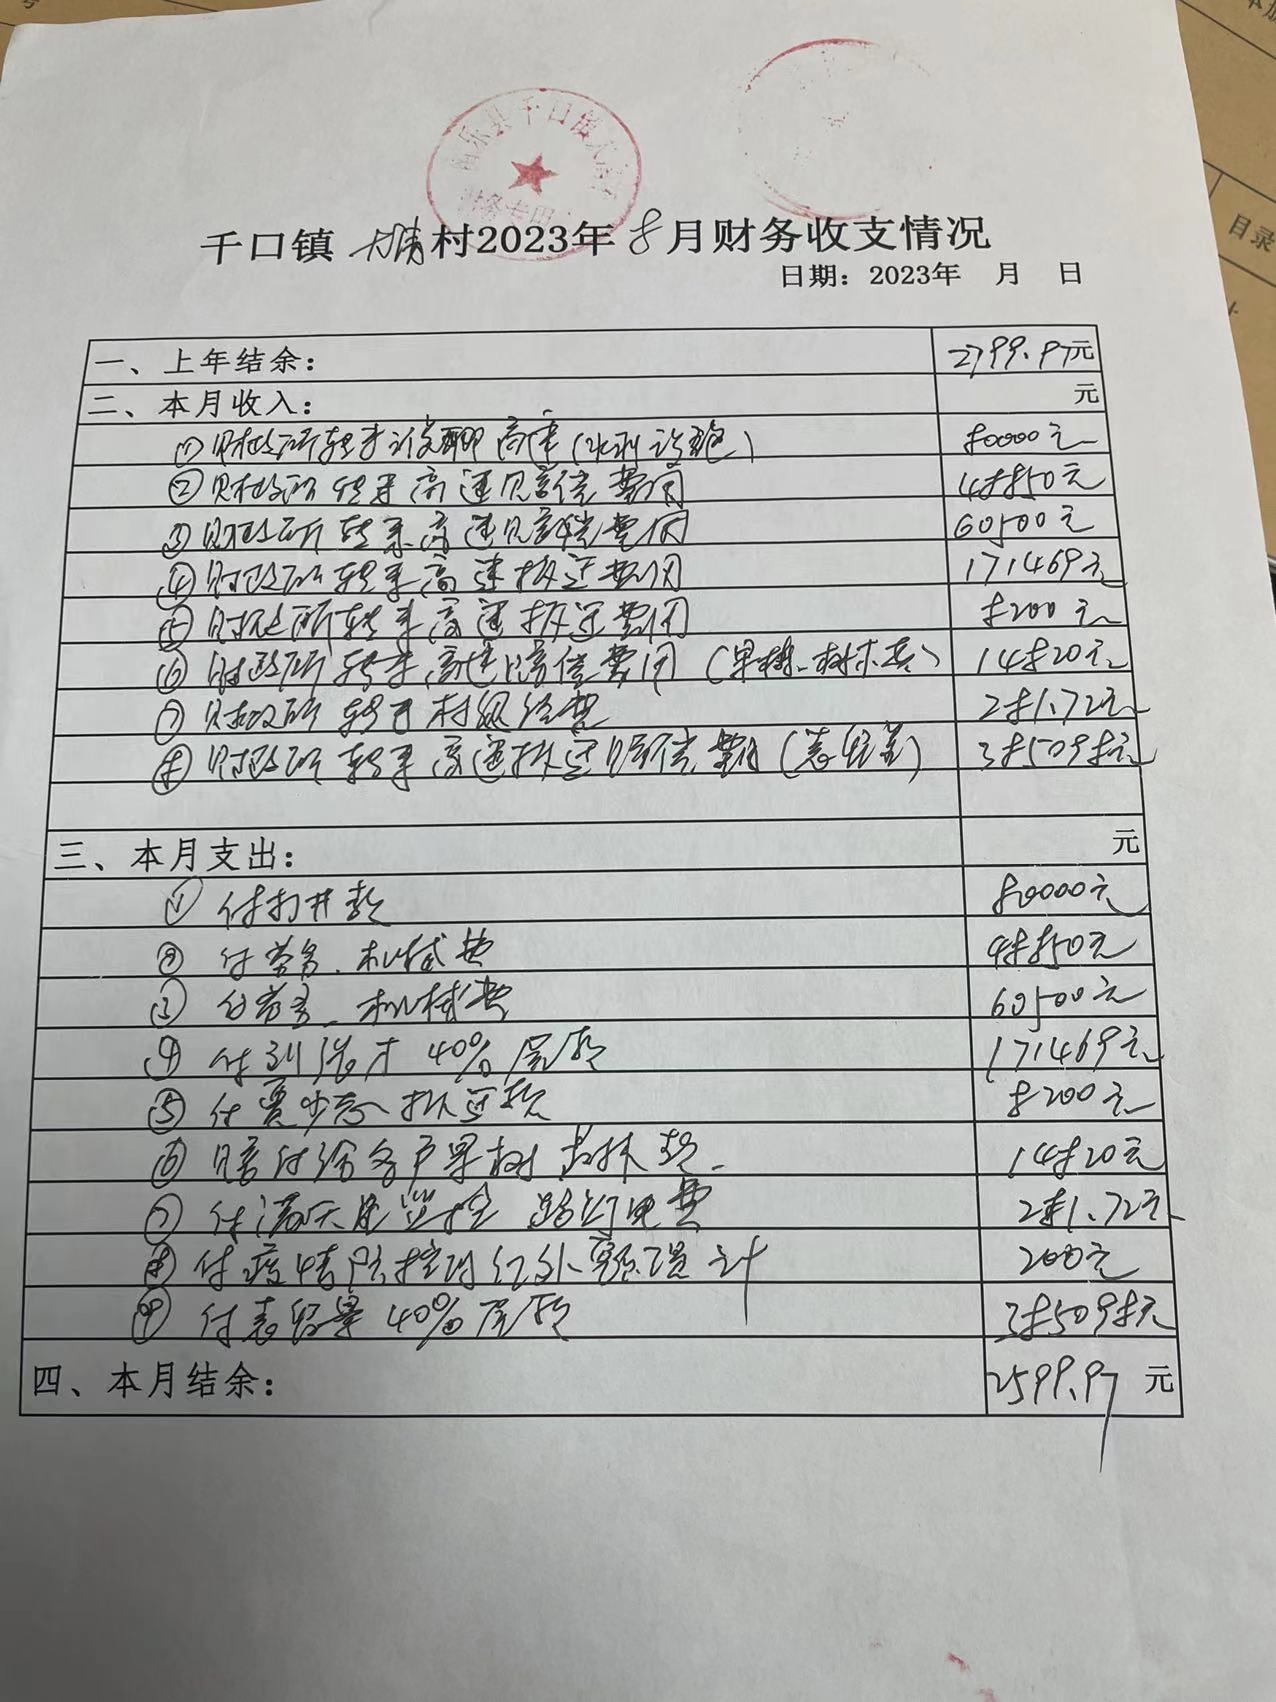 南乐县千口镇
财务专用
千口镇 村2023年8月财务收支情况
日期：2023年 月 日
目录
一、上年结余： 2799.97元
二、本月收入： 元
①财政所转来 高速（水利设施） 80000元
②财政所转来高速赔偿费用 48850元
③财政所转来高速赔偿费用 60500元
④财政所转来高速拆迁费用 171469元
⑤财政所转来高速拆迁费用 8200元
⑥财政所转来高速赔偿费用（果树、树木 ） 14820元
⑦财政所转来村级经费 281.72元
⑧财政所转来高速拆迁赔偿费用（ ） 385098元
三、本月支出： 元
① 付打井款 80000元
② 付劳务、机械费 48850元
③ 付劳务、机械费 60500元
④ 付刘 才 40%尾款 171469元
⑤ 付 拆迁款 8200元
⑥ 赔付给各户果树 款 14820元
⑦ 付 监控 路灯电费 281.72元
⑧ 付疫情防控 红外额温计 200元
⑨ 付 40%尾款 385098元
四、本月结余： 2599.97 元